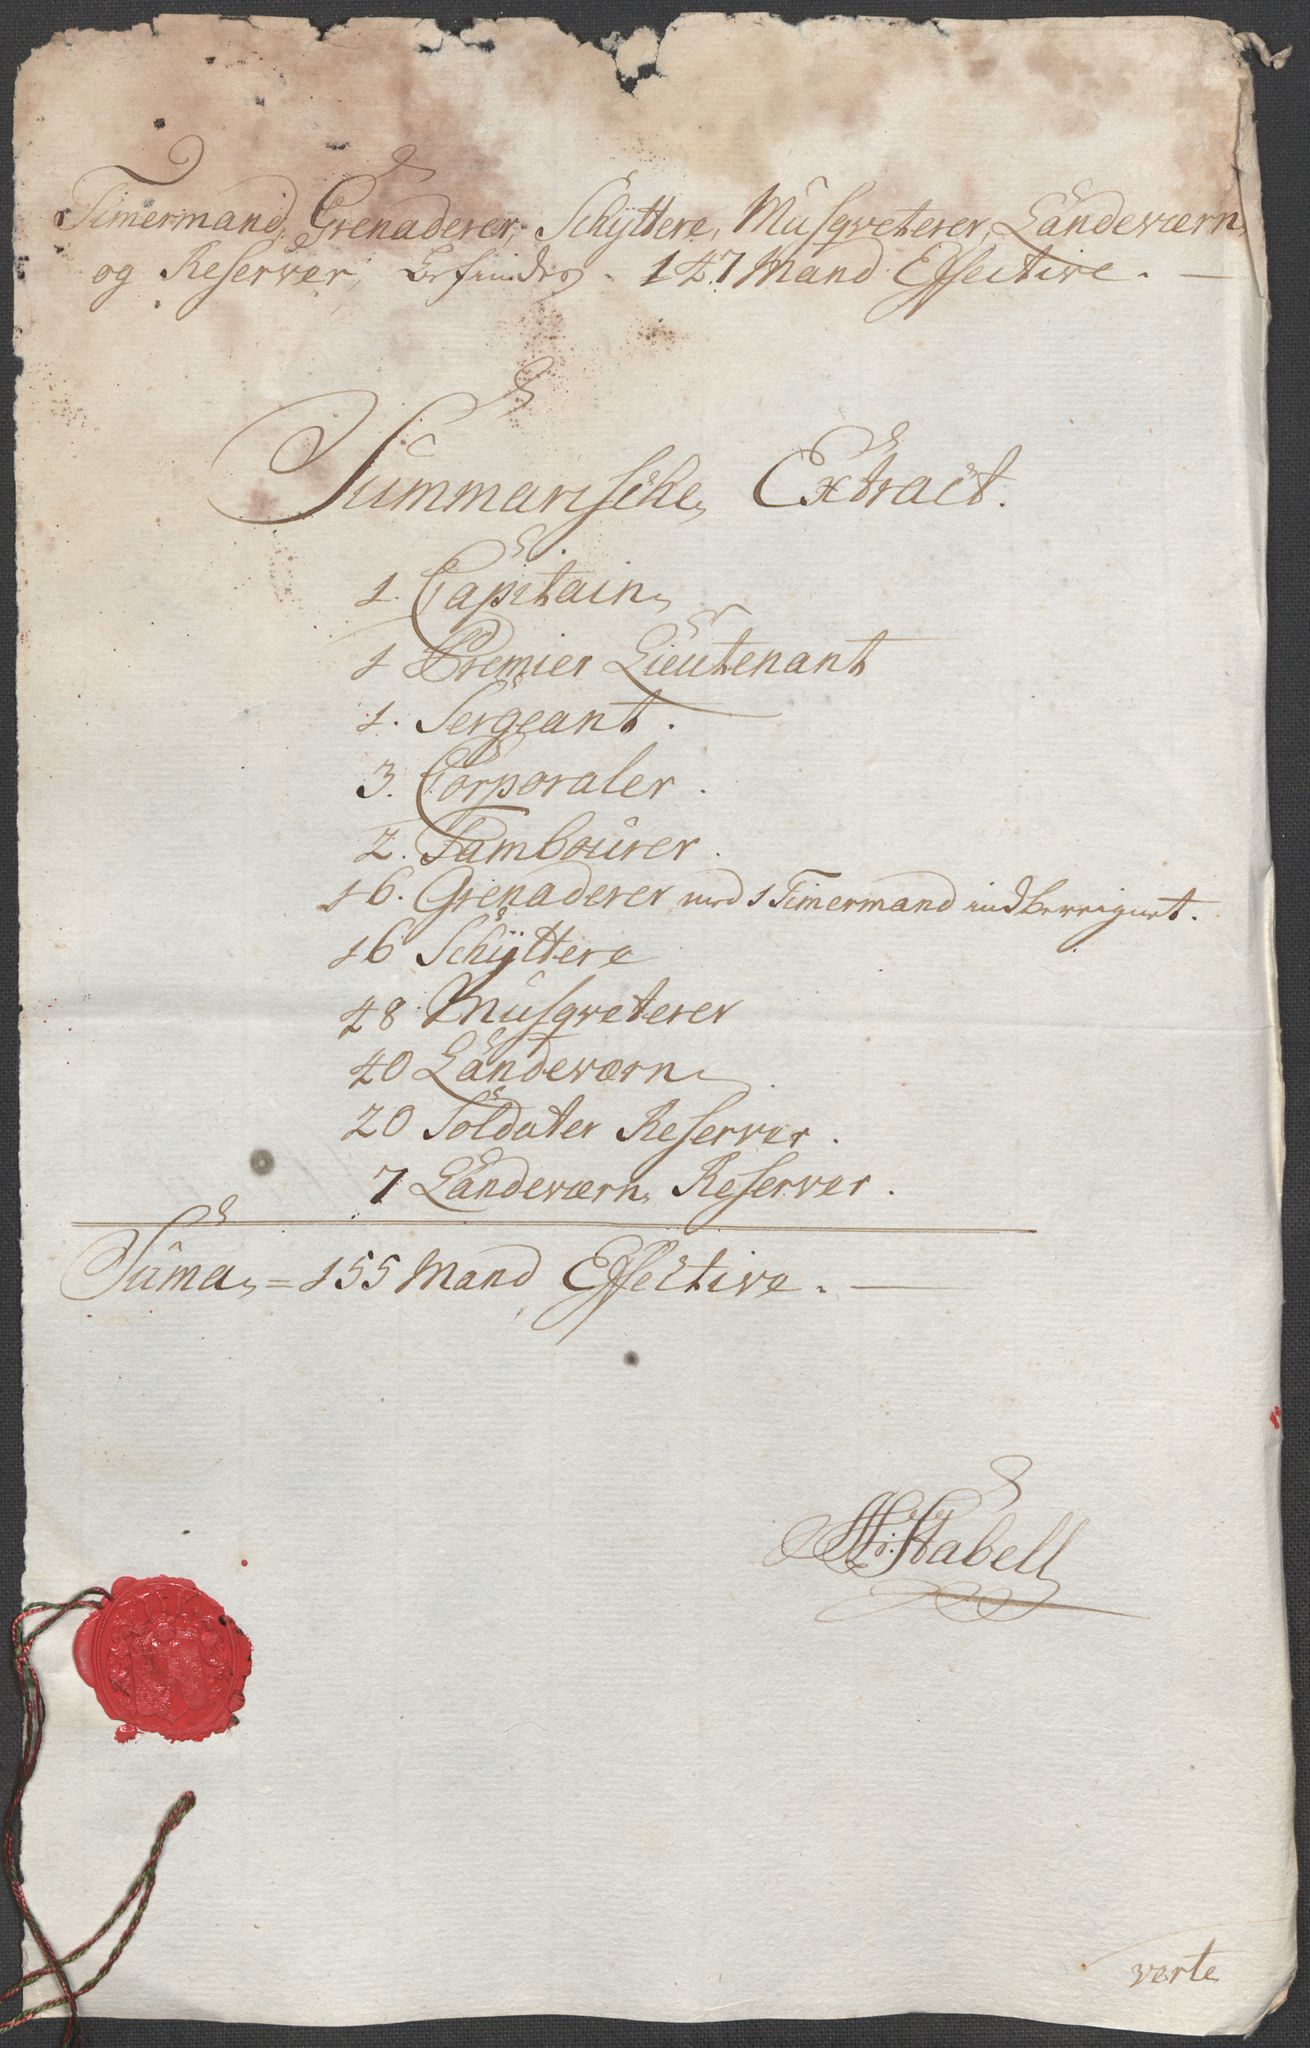 Timermand, Grenaderer, Schÿttere, Musqveterer, Landeværn,
og Reserver, befindes. 147 Mand Effective. —
Summarische Extract.
1. Capitain
1 Premier Lieutenant
1. Sergeant.
3. Corporaler.
2. Tambourer.
16. Grenaderer med 1 Timermand indbereignet.
16 Schÿttere
48 Musqveterer
40 Landeværn
20 Soldater Reserver.
7 Landeværn Reserver.
Suma = 155 Mand Effective. —
Stabell
verte